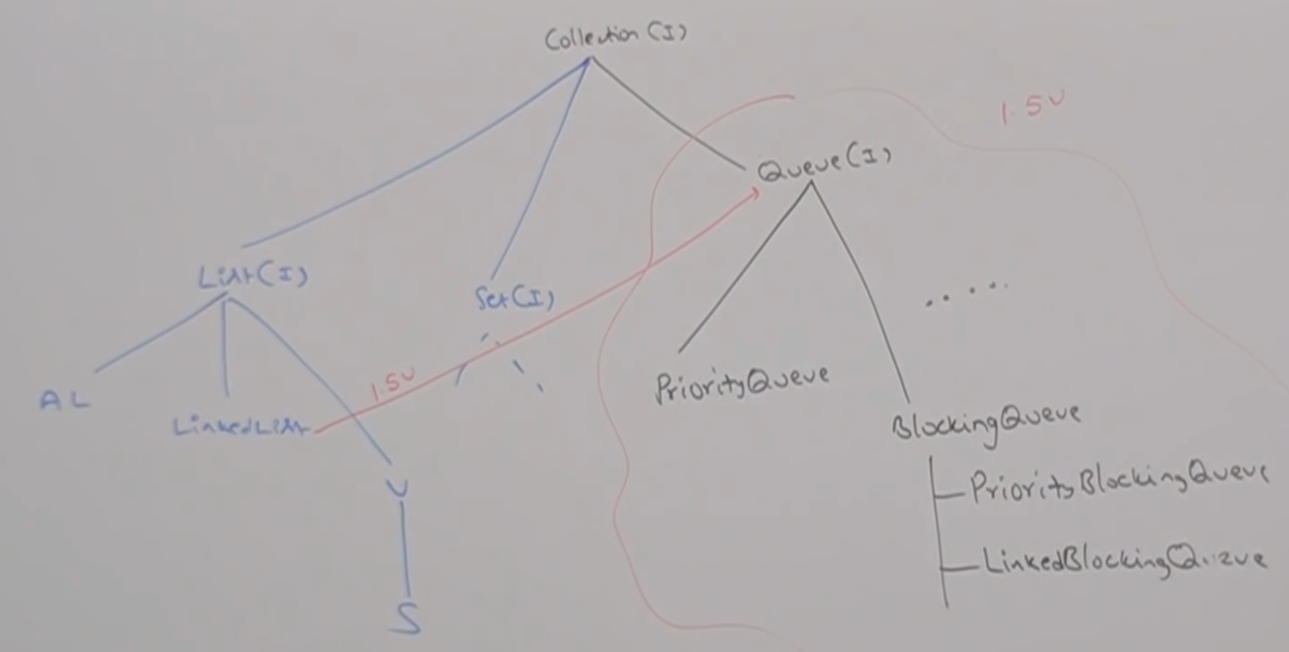 Collection (I)
1.5v
Queue(I)
List(I)
Set(I)
.....
1.5v
AL
LinkedList
PriorityQueue
BlockingQueue
V
PriorityBlockingQueue
LinkedBlockingQueue
S